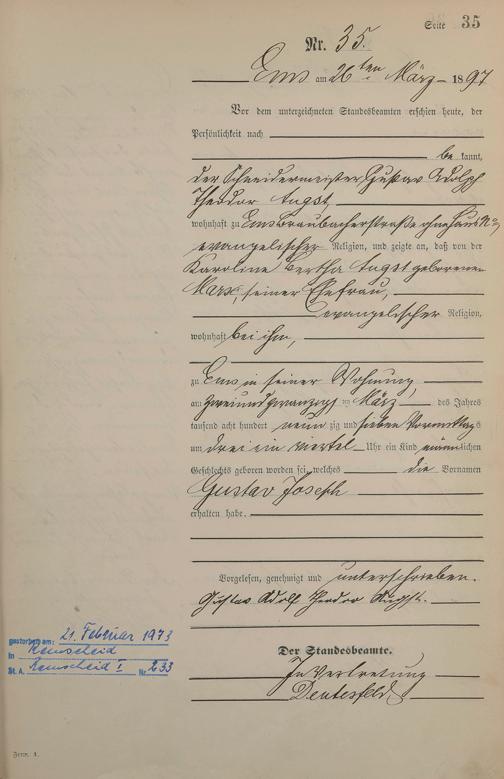 Seite 35
Nr. 35.
Ems am 26ten März 1897
Vor dem unterzeichneten Standesbeamten erschien heute, der
Persönlichkeit nach
be kannt,
der Schneidermeister Gustav Adolph
Theodor Angst
wohnhaft zu Ems Braubacherstraße ohne Haus No,
evangelischer Religion, und zeigte an, daß von der
Karoline Bertha Angst geborenen
Marx, seiner Ehefrau,
evangelischer Religion,
wohnhaft bei ihm,
zu Ems in seiner Wohnung
am zweiundzwanzigsten März des Jahres
tausend acht hundert neunzig und sieben Vormittags
um drei ein viertel Uhr ein Kind männlichen
Geschlechts geboren worden sei, welches die Vornamen
Gustav Joseph
erhalten habe.
Vorgelesen, genehmigt und unterschrieben.
Gustav Adolf Theodor Angst.
Der Standesbeamte.
In Vertretung
gestorben am: 21. Februar 1973
in Remscheid
St. A. Remscheid I Nr. 233
Form. A.